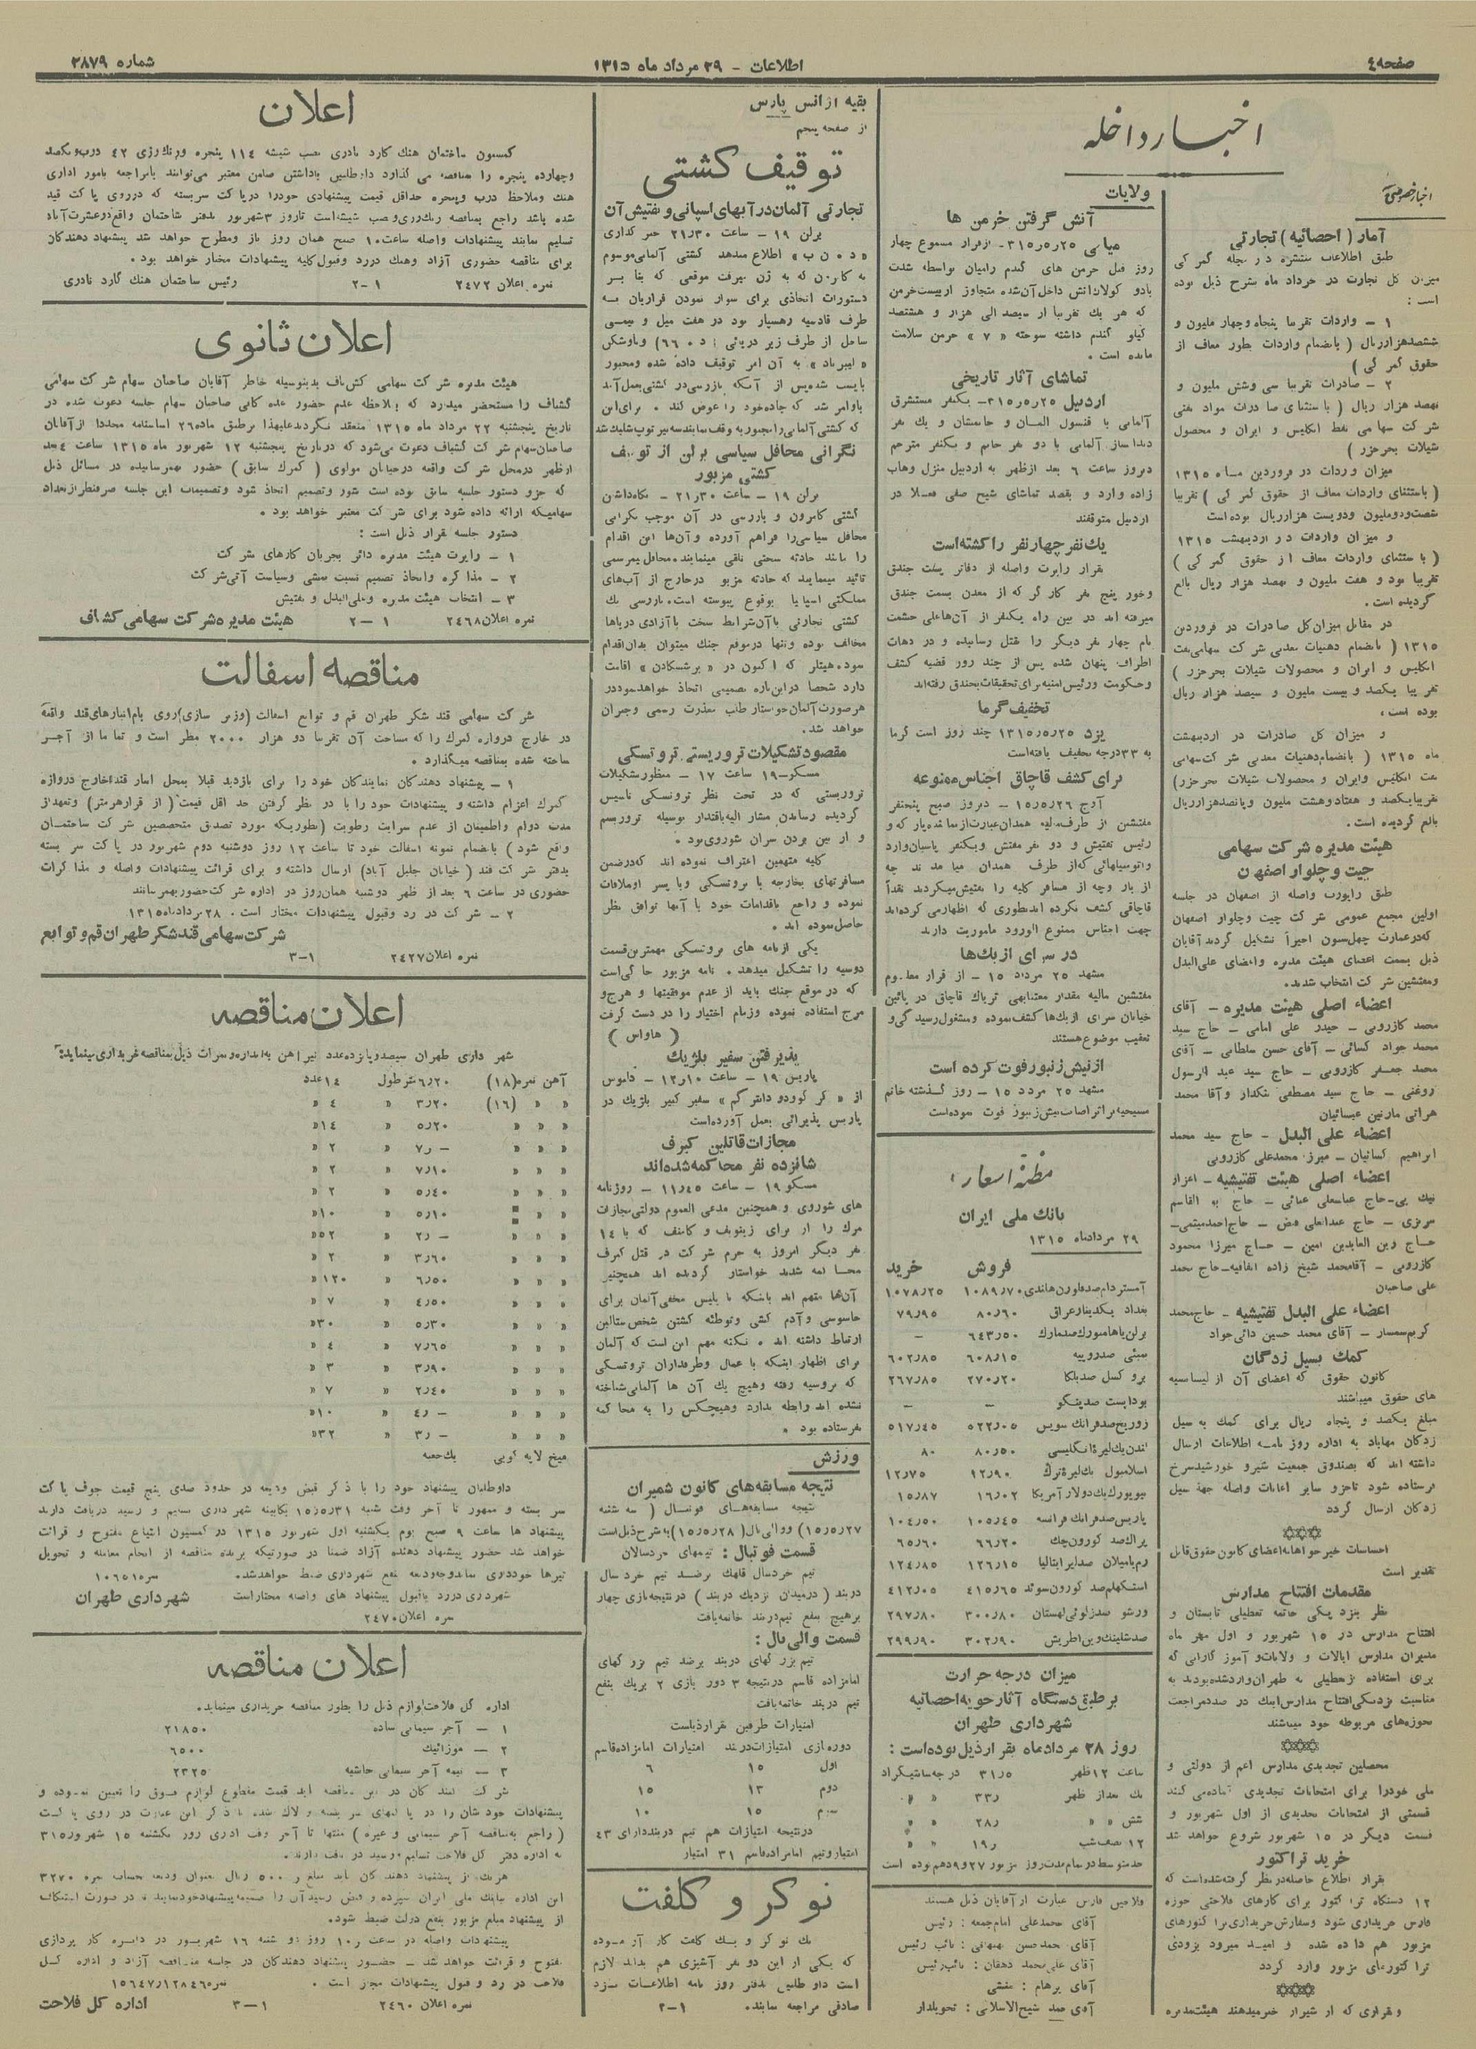 صفحه ٤
اطلاعات - ٢٩ مرداد ماه ١٣١٥
شماره ٢٨٧٩
اخبار داخله
آمار ( احصائیه ) تجارتی
طبق اطلاعات منتشره در مجله گمر کی
میزان کل تجارت در خرداد ماه بشرح ذیل بوده
است :
١ - واردات تقریبا پنجاه و چهار ملیون و
ششصد هزار ریال ( بانضمام واردات بطور معاف از
حقوق گمر کی )
٢ - صادرات تقریبا سی و شش ملیون و
نهصد هزار ریال ( باستثنای صادرات مواد نفتی
شر کت سهامی نفط انگلیس و ایران و محصول
شیلات بحر خزر )
میزان واردات در فروردین مـاه ١٣١٥
( باستثنای واردات معاف از حقوق گمر کی ) تقریبا
شصت و دو ملیون و دویست هزار ریال بوده است
و میزان واردات در اردیبهشت ١٣١٥
( با ستثنای واردات معاف از حقوق گمر کی )
تقریبا نود و هفت ملیون و نهصد هزار ریال بالغ
گردیده است .
در مقابل میزان کل صادرات در فروردین
١٣١٥ ( بانضمام دهنیات معدنی شر کت سهامی نفت
انگلیس و ایران و محصولات شیلات بحر خزر )
تقر یبا یکصد و بیست ملیون و سیصد هزار ریال
بوده است .
و میزان کل صادرات در اردیبهشت
ماه ١٣١٥ ( بانضمام دهنیات معدنی شر کت سهامی
نفت انگلیس و ایران و محصولات شیلات بحر خزر )
تقریبا یکصد و هفتاد و هشت ملیون و پانصد هزار ریال
بالغ گردیده است .
هیئت مدیره شر کت سهامی
چیت و چلوار اصفهان
طبق راپورت واصله از اصفهان در جلسه
اولین مجمع عمومی شر کت چیت و چلوار اصفهان
که در عمارت چهل ستون اخیراً تشکیل گردید آقایان
ذیل بسمت اعضای هیئت مدیره و اعضای علی البدل
و مفتشین شر کت انتخاب شدند .
اعضاء اصلی هیئت مدیره - آقای
محمد کازرونی - حیدر علی امامی - حاج سید
محمد جواد کسائی - آقای حسن سلطانی - آقای
محمد جعفر کازرونی - حاج سید عبد الرسول
روغنی - حاج سید مصطفی بنکدار و آقا محمد
هراتی مارتین عیسائیان
اعضاء علی البدل - حاج سید محمد
ابراهیم کسائیان - میرزا محمد علی کازرونی
اعضاء اصلی هیئت تفتیشیه -
نیك پی - حاج عباسعلی
حـاج زین العابدین امین - حـاج میرزا محمود
کازرونی - آقا محمد شیخ زاده - حاج محمد
علی صاحبان
اعضاء علی البدل تفتیشیه - حاج محمد
کریم سمسار - آقای محمد حسین دائی جواد
کمك بسیل زدگان
کانون حقوق که اعضای آن از لیسانسیه
های حقوق میباشند
مبلغ یکصد و پنجاه ریال برای کمك به سیل
زدکان مهاباد به اداره روز نامـه اطلاعات ارسال
داشته اند که بصندوق جمعیت شیر و خورشید سرخ
فرستاده شود تا جزو سایر اعانات واصله جهة سیل
زدکان ارسال گردد
احساسات خیر خواهانه اعضای کانون حقوق قابل
تقدیر است
مقدمات افتتاح مدارس
نظر بنزد یکی خاتمه تعطیلی تابستان و
افتتاح مدارس در ١٥ شهریور و اول مهر ماه
مدیران مدارس ایالات و ولایات و آموز گارانی که
برای استفاده از تعطیلی به طهران وارد شده بودند به
مناسبت نزدیکی افتتاح مدارس اینك در صدد مراجعت
بحوزه های مربوطه خود میباشند
محصلین تجدیدی مدارس اعم از دولتی و
ملی خود را برای امتحانات تجدیدی آماده می کنند
قسمتی از امتحانات تجدیدی از اول شهریور و
قسمت دیگر در ١٥ شهریور شروع خواهد شد
خرید تراکتور
بقرار اطلاع حاصله در نظر گرفته شده است که
١٢ دستگاه ترا کتور برای کارهای فلاحتی حوزه
فارس خریداری شود و سفارش خریداری ترا کتورهای
مزبور هم داده شده و امیـد میرود بزودی
ترا کتورهای مزبور وارد گردد
و بقراری که از شیراز خبر میدهند هیئت مدیره
ولایات
آتش گرفتن خرمن ها
روز قبل خرمن های گندم رامیان بواسطه شدت
که هر یك تقریبا از سیصد الی هزار و هشتصد
کیلو گندم داشته سوخته « ٧ » خرمن سلامت
مانده است .
تماشای آثار تاریخی
اردبیل ٢٥ر٥ر٣١٥- یکنفر مستشرق
آلمانی با قنسول آلمـان و خانمشان و یك نفر
دندانساز آلمانی با دو نفر خانم و یکنفر مترجم
دیروز ساعت ٦ بعد از ظهر به اردبیل منزل وهاب
زاده وارد و بقصد تماشای شیخ صفی فعلا در
اردبیل متوقفند
یك نفر چهار نفر را کشته است
بقرار راپرت واصله از دفاتر پست جندق
و خور پنج نفر کار گر که از معدن بسمت جندق
میرفته اند در بین راه یکنفر از آن ها علی حشمت
نام چهار نفر دیگر را بقتل رسانیده و در دهات
اطراف پنهان شده پس از چند روز قضیه کشف
و حکومت و رئیس امنیه برای تحقیقات بجندق رفته اند
تخفیف گرما
یزد ٢٥ر٥ر١٣١٥ چند روز است گرما
به ٣٣ درجه تخفیف یافته است
برای کشف قاچاق اجناس ممنوعه
آوج ٢٦ر٥ر١٥ - دیروز صبح پنجنفر
مفتشین از طرف مالیه همدان عبارت از نماینده بار که و
رئیس تفتیش و دو نفر مفتش و یکنفر پاسبان وارد
و اتومبیلهائی که از طرف همدان میا مدند چه
از بار و چه از مسافر کلیه را تفتیش میکردند نقداً
قاچاقی کشف نکرده اند بطوری که اظهار می کرده اند
جهت اجناس ممنوع الورود ماموریت دارند
در سرای ازبك ها
مشهد ٢٥ مرداد ١٥ - از قرار معلـوم
مفتشین مالیه مقدار معتنابهی تریاك قاچاق در پائین
خیابان سرای ازبك ها کشف نموده و مشغول رسیدگی و
تعقیب موضوع هستند
از نیش زنبور فوت کرده است
مشهد ٢٥ مرداد ١٥ - روز گذشته خانم
مسیحیه بر اثر اصابت نیش زنبور فوت نموده است
مظنه اسعار
بانك ملی ایران
٢٩ مرداد ماه ١٣١٥
فروش خرید
آمستردام صد فلورن هلندی ١٠٨٩٫٧٠ ١٠٧٨٫٢٥
بغداد یکدینار عراق ٨٠٫٦٠ ٧٩٫٩٥
برلن یا هامبورك صد مارك ٦٤٣٫٥٠ -
بمبئی صد روپیه ٦٠٨٫١٥ ٦٠٢٫٨٥
برو کسل صد بلکا ٢٧٠٫٢٠ ٢٦٧٫٨٥
بوداپست صد پنگو - -
زوریخ صد فرانك سویس ٥٢٢٫٠٥ ٥١٧٫٤٥
لندن یك لیرهٔ انگلیسی ٨٠٫٥٠ ٨٠
اسلامبول یك لیرهٔ ترك ١٢٫٩٠ ١٢٫٧٥
نیویورك یك دولار آمریکا ١٦٫٠٢ ١٥٫٨٧
پاریس صد فرانك فرانسه ١٠٥٫٤٥ ١٠٤٫٥٠
پراك صد کورون چك ٦٦٫٢٠ ٦٥٫٦٠
رم یا میلان صد لیر ایتالیا ١٢٦٫١٥ ١٢٤٫٨٥
استکهلم صد کورون سوئد ٤١٥٫٦٥ ٤١٢٫٠٥
ورشو صد زلوتی لهستان ٣٠٠٫٨٠ ٢٩٧٫٨٠
صد شلینك وین اطریش ٣٠٢٫٩٠ ٢٩٩٫٩٠
میزان درجه حرارت
بر طبق دستگاه آثار جویه احصائیه
شهرداری طهران
روز ٢٨ مرداد ماه بقرار ذیل بوده است :
ساعت ١٢ ظهر ٣١٫٥ درجه سانتیگراد
یك بعد از ظهر ٣٣٫ » »
شش » » ٢٨٫ » »
١٢ نصف شب ١٩٫ » »
حد متوسط در تمام مدت روز مزبور ٢٧ و ٩ دهم بوده است
فلاحتی فارس عبارت از آقایان ذیل هستند
آقای محمد علی امام جمعه : رئیس
آقای محمد حسن بهبهانی : نائب رئیس
آقای علی محمد دهقان : نائب رئیس
آقای پرهام : منشی
آقای صمد شیخ الاسلامی : تحویلدار
بقیه اژانس پارس
از صفحه پنجم
توقیف کشتی
تجارتی آلمان در آبهای اسپانی و تفتیش آن
برلن ١٩ - ساعت ٢١٫٣٠ خبر گذاری
«د . ن . ب» اطلاع میدهد کشتی آلمانی موسوم
به کامرن که به ژن میرفت موقعی که بنا بـر
دستورات اتخاذی برای سوار نمودن فراریان بـه
طرف قادسیه رهسپار بود در هفت میل و نیمـی
ساحل از طرف زیر دریائی
بایست شد پس از آنکه بازرسی در کشتی بعمل آمد
باو امر شد که جاده خود را عوض کند . برای این
که کشتی آلمانی را مجبور به وقف نمایند سه تیر توپ شلیك شد
نگرانی محافل سیاسی برلن از توقیف
کشتی مزبور
برلن ١٩ - ساعت ٢١٫٣٠ - نگاهداشتن
کشتی کامرون و بازرسی در آن موجب نگرانی
محافل سیاسی را فراهم آورده و آن ها این اقدام
را مانند حادثه سختی تلقی مینمایند . محافل غیر رسمی
تائید مینمایند که حادثه مزبور در خارج از آب های
مملکتی اسپانیا بوقوع پیوسته است . بازرسی یك
کشتی تجارتی با آن شرایط سخت با آزادی دریاها
مخالف بوده و تنها در موقع جنك میتوان بدان اقدام
نمود . هیتلر که ا کنون در « برشتسگادن » اقامت
دارد شخصا در این باره تصمیمی اتخاذ خواهد نمود . در
هر صورت آلمان خواستار طلب معذرت رسمی و جبران
خواهد شد .
مقصود تشکیلات تروریستی تروتسکی
مسکو - ١٩ ساعت ١٧ - منظور تشکیلات
تروریستی که در تحت نظر تروتسکی تاسیس
گردیده رساندن مشار الیه باقتدار بوسیله تروریسم
و از بین بردن سران شوروی بود .
کلیه متهمین اعتراف نموده اند که در ضمن
مسافرتهای بخارجه با تروتسکی و یا پسر او ملاقات
نموده و راجع باقدامات خود با آنها توافق نظر
حاصل نموده اند .
یکی از نامه های تروتسکی مهمترین قسمت
دوسیه را تشکیل میدهد . نامه مزبور حا کی است
که در موقع جنك باید از عدم موفقیتها و هرج و
مرج استفاده نموده و زمام اختیار را در دست گرفت
( هاواس )
پذیرفتن سفیر بلژیك
پاریس ١٩ - ساعت ١٢٫١٠ -
سفیر کبیر بلژیك در
پاریس پذیرائی بعمل آورده است
مجازات قاتلین کیرف
شانزده نفر محاکمه شده اند
مسکو ١٩ - ساعت ١١٫٤٥ - روزنامه
های شوروی و همچنین مدعی العموم دولتی مجازات
مرك را از برای زینویف و کامنف که با ١٤
نفر دیگر امروز به جرم شر کت در قتل کیرف
محـا کمه شدند خواستار گردیده اند همچنین
آن ها متهم اند باینکه با پلیس مخفی آلمان برای
جاسوسی و آدم کشی و توطئه کشتن شخص ستالین
ارتباط داشته اند . نکته مهم این است که آلمان
برای اظهار اینکه با عمال و طرفداران تروتسکی
که بروسیه رفته و هیچ یك آن ها آلمانی شناخته
نشده اند رابطه ندارد و هیچکس را به محا کمه
نفرستاده بود .
ورزش
نتیجه مسابقه های کانون شمیران
نتیجه مسابقه های فوتبـال ( سه شنبه
٢٧ر٥ر١٥ ) و والی بال ( ٢٨ر٥ر١٥ ) بشرح ذیل است
قسمت فوتبال : تیمهای خردسالان
تیم خردسال قلهك برضـد تیم خردسال
دربند ( در میدان نزدیك دربند ) در نتیجه بازی چهار
بر هیچ بنفع تیم دربند خاتمه یافت
قسمت والی بال :
تیم بزر گهای دربند برضد تیم بزر گهای
امامزاده قاسم در نتیجه ٣ دور بازی ٢ بریك بنفع
تیم دربند خاتمه یافت
امتیازات طرفین بقرار ذیلست
دوره بازی امتیازات دربند امتیازات امامزاده قاسم
اول ١٥ ٦
دوم ١٣ ١٥
سوم ١٥ ١٠
در نتیجه امتیازات هم تیم دربند دارای ٤٣
امتیاز و تیم امامزاده قاسم ٣١ امتیاز
نوکر و کلفت
یك نوکر و یـك کلفت کار آزمـوده
که یکی از این دو نفر آشپزی هم بداند لازم
است داوطلبین بدفتر روز نامه اطلاعـات نـزد
صادقی مراجعه نمایند . ١-٢
اعلان
کمسیون ساختمان هنك گارد نادری نصب شیشه ١١٤ پنجره و رنك رزی ٤٢ درب و یکصد
و چهارده پنجره را بمناقصه می گذارد داوطلبین باداشتن ضامن معتبر می توانند بامراجعه بامور اداری
هنك و ملاحظه درب و پنجره حداقل قیمت پیشنهادی خود را در پا کت سربسته که در روی پا کت قید
شده باشد راجع بمناقصه رنك رزی و نصب شیشه است تا روز ٣ شهریور بدفتر ساختمان واقع در عشرت آباد
تسلیم نمایند پیشنهادات واصله ساعت ١٠ صبح همان روز باز و مطرح خواهد شد پیشنهاد دهندگان
برای مناقصه حضوری آزاد و هنك در رد و قبول کلیه پیشنهادات مختار خواهد بود .
نمره اعلان ٢٤٧٢ ١-٢ رئیس ساختمان هنك گارد نادری
اعلان ثانوی
هیئت مدیره شر کت سهامی کش باف بدینوسیله خاطر آقایان صاحبان سهام شر کت سهامی
کشباف را مستحضر میدارد که بملاحظه عدم حضور عده کافی صاحبان سهام جلسه دعوت شده در
تاریخ پنجشنبه ٢٢ مرداد ماه ١٣١٥ منعقد نگردید علیهذا بر طبق ماده ٢٦ اساسنامه مجددا از آقایان
صاحبان سهام شر کت کشباف دعوت می شود که در تاریخ پنجشنبه ١٢ شهریور ماه ١٣١٥ ساعت ٤ بعد
از ظهر در محل شر کت واقعه در خیابان مولوی ( گمرك سابق ) حضور بهمرسانیده در مسائل ذیل
که جزو دستور جلسه سابق بوده است شور و تصمیم اتخاذ شود و تصمیمات این جلسه صرفنظر از تعداد
سهامیکه ارائه داده شود برای شر کت معتبر خواهد بود .
دستور جلسه بقرار ذیل است :
١ - راپرت هیئت مدیره دائر بجریان کارهای شر کت
٢ - مذا کره و اتخاذ تصمیم نسبت بمشی و سیاست آتی شر کت
٣ - انتخاب هیئت مدیره و علی البدل و تفتیش
نمره اعلان ٢٤٦٨ ١-٢ هیئت مدیره شرکت سهامی کشاف
مناقصه اسفالت
شر کت سهامی قند شکر طهران قم و توابع اسفالت ( وزیر سازی ) روی بام انبارهای قند واقعه
در خارج دروازه گمرك را که مساحت آن تقریبا دو هزار ٢٠٠٠ مطر است و تماما از آجـر
ساخته شده بمناقصه میگذارد .
١ - پیشنهاد دهندگان نمایندگان خود را برای بازدید قبلا بمحل انبار قند خارج دروازه
گمرك اعزام داشته و پیشنهادات خود را با در نظر گرفتن حد اقل قیمت ( از قرار هر متر ) و تعهد از
مدت دوام و اطمینان از عدم سرایت رطوبت ( بطوریکه مورد تصدیق متخصصین شر کت ساختمـان
واقع شود ) بانضمام نمونه اسفالت خود تا ساعت ١٢ روز دوشنبه دوم شهریور در پا کت سر بسته
بدفتر شر کت قند ( خیابان جلیل آباد ) ارسال داشته و برای قرائت پیشنهادات واصله و مذا کرات
حضوری در ساعت ٦ بعد از ظهر دوشنبه همان روز در اداره شر کت حضور بهمرسانند
٢ - شر کت در رد و قبول پیشنهادات مختار است . ٢٨ مرداد ماه ١٣١٥
شر کت سهامی قند شکر طهران قم و توابع
نمره اعلان ٢٤٢٧ ١-٣
اعلان مناقصه
شهر داری طهران سیصد و پانزده عدد تیر آهن به اندازه و نمرات ذیل بمناقصه خریداری مینماید :
آهن نمره (١٨) ٦٫٢٠ متر طول ١٤ عدد
» » (١٦) ٣٫٢٠ » ٤ »
» » » ٥٫٢٠ » ١٤ »
» » » -ر٧ » ٢ »
» » » ٧٫١٠ » ٢ »
» » » ٥٫٤٠ » ٢ »
» » ٥٫١٠ » ١٠ »
» » » -ر٢ » ٥٢ »
» » » ٣٫٦٠ » ٢ »
» » » ٦٫٥٠ » ١٢٠ »
» » » ٤٫٥٠ » ٧ »
» » » ٥٫٣٠ » ٣٠ »
» » » ٧٫٦٥ » ٤ »
» » » ٣٫٩٠ » ٣ »
» » » ٢٫٤٠ » ٧ »
» » » -ر٤ » ١٠ »
» » » -ر٣ » ٣٢ »
میخ لایه کوبی یك جعبه
داوطلبان پیشنهاد خود را با ذ کر قبض ودیعه در حدود صدی پنج قیمت جوف پا کت
سر بسته و ممهور تا آخر وقت شنبه ٣١ر٥ر١٥ بکابینه شهر داری تسلیم و رسید دریافت دارند
پیشنهاد ها ساعت ٩ صبح یوم یکشنبه اول شهریور ١٣١٥ در کمسیون ابتیاع مفتوح و قرائت
خواهد شد حضور پیشنهاد دهنده آزاد ضمنا در صورتیکه برنده مناقصه از انجام معامله و تحویل
تیرها خودداری نماید ودیعه بنفع شهرداری ضبط خواهد شد .
شهرداری در رد یا قبول پیشنهاد های واصله مختار است شهرداری طهران
نمره اعلان ٢٤٧٠
اعلان مناقصه
اداره کل فلاحت لوازم ذیل را بطور مناقصه خریداری مینماید .
١ - آجر سیمانی ساده ٢١٨٥٠
٢ - موزائیك ٦٥٠٠
٣ - نیمه آجر سیمانی حاشیه ٢٣٢٥
شر کت کنند کان در این مناقصه باید قیمت مقطوع لوازم فـوق را تعیین نمـوده و
پیشنهادات خود شان را در پا کتهای سر بسته و لاك شده با ذ کر این عبارت در روی پا کت
( راجع بمناقصه آجر سیمانی و غیره ) منتها تا آخر وقت اداری روز یکشنبه ١٥ شهریور ٣١٥
به اداره دفتر کل فلاحت تسلیم و رسید دریافت دارند .
هر یك از پیشنهاد دهند کان باید مبلغ ٥٠٠ ریال بعنوان ودیعه بحساب نمره ٣٢٧٠
این اداره ببانك ملی ایران سپرده و قبض رسید آن را ضمیمه پیشنهاد خود نمایند تا در صورت استنکاف
از پیشنهاد مبلغ مزبور بنفع دولت ضبط شود .
پیشنهادات واصله در ساعت ١٠ روز دو شنبه ١٦ شهریـور در دایـره کار پردازی
مفتوح و قرائت خواهد شد - حضـور پیشنهاد دهندکان در جلسه مناقصه آزاد و اداره کـل
فلاحت در رد و قبول پیشنهادات مجاز است .
نمره اعلان ٢٤٦٠ ١-٣ اداره کل فلاحت